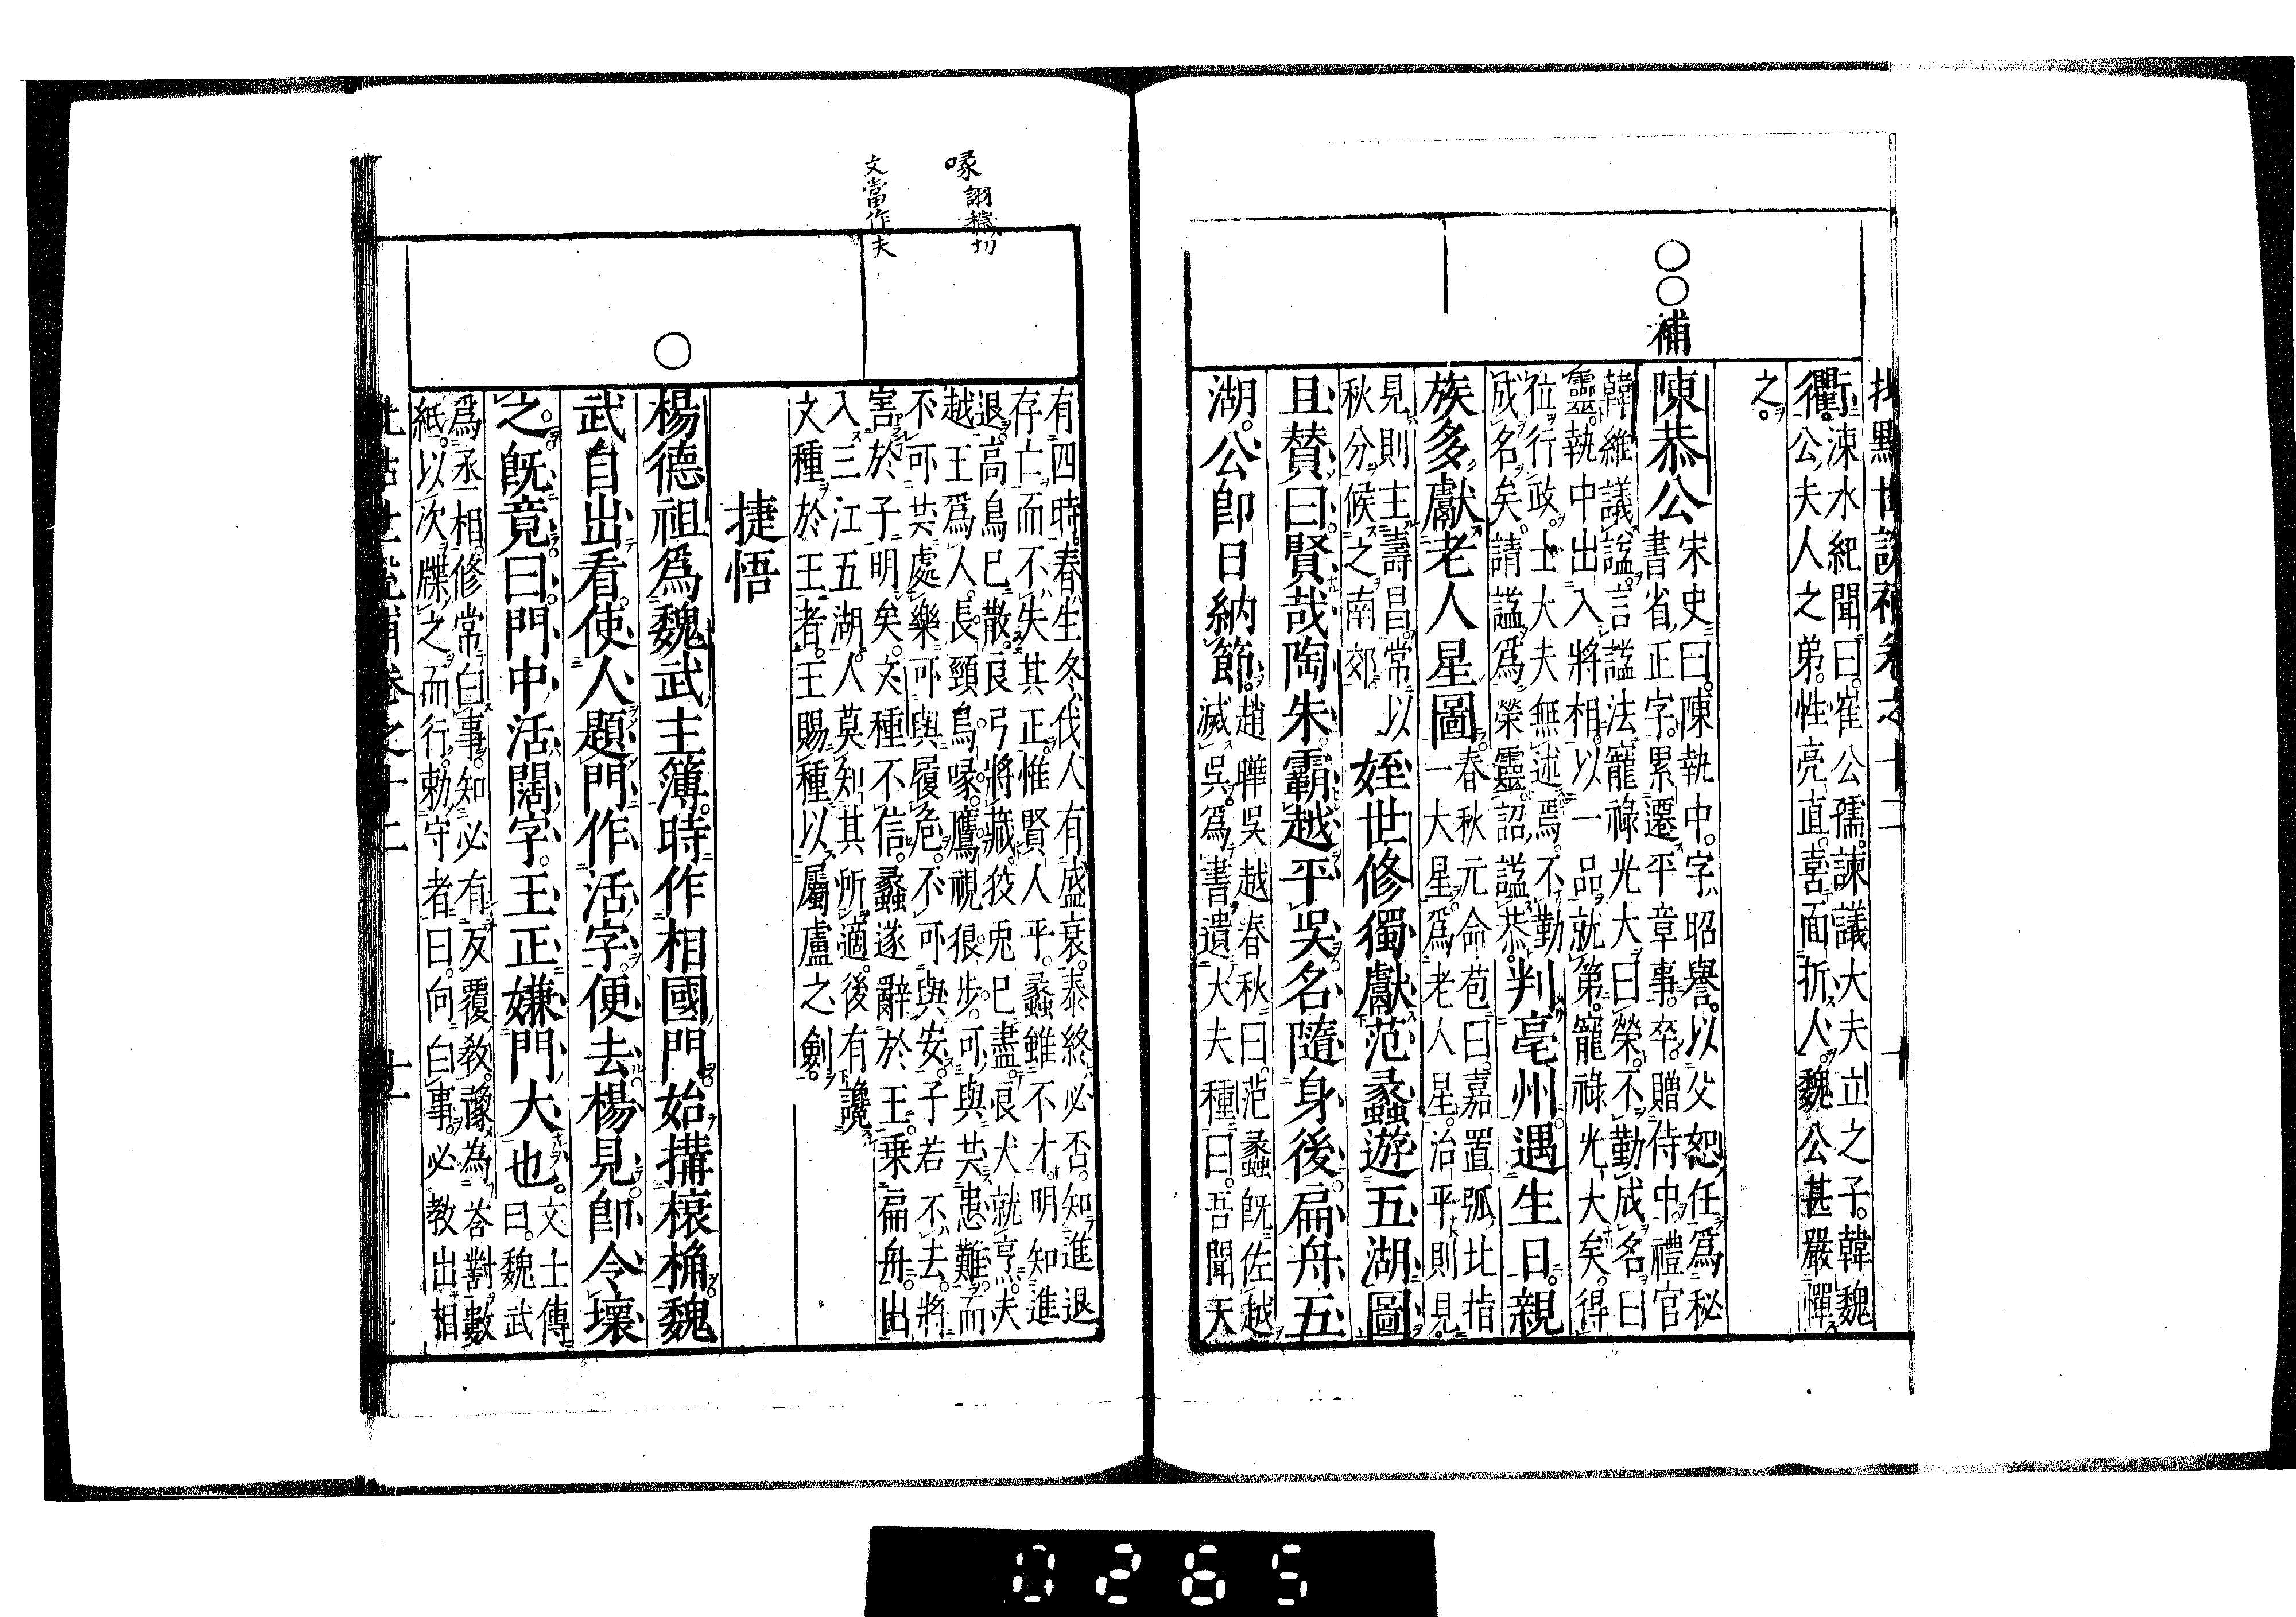 ○○補
衢涑水紀聞曰崔公孺諫議大夫立之子韓魏
公夫人之弟性亮直喜面折人魏公甚嚴憚
之
陳恭公宋史曰陳執中字昭譽以父恕任爲秘
書省正字累遷平章事卒贈侍中禮官
韓維議諡言諡法寵祿光大曰榮不勤成名曰
靈執中出入將相以一品就第寵祿光大矣得
位行政士大夫無述焉不勤
成名矣請諡爲榮靈詔諡恭判亳州遇生日親
族多獻老人星圖春秋元命苞曰嘉置弧北指
一大星爲老人星治平則見
見則主壽昌常以
秋分候之南郊姪世修獨獻范蠡遊五湖圖
且賛曰賢哉陶朱霸越平吳名隨身後扁舟五
湖公卽日納節趙曄吳越春秋曰范蠡旣佐越
滅吳爲書遺大夫種曰吾聞天
喙詡穢切
文當作夫
○
有四時春生冬伐人有盛衰泰終必否知進退
存亡而不失其正惟賢人乎蠡雖不才明知進
退高鳥已散良弓將藏狡兎已盡良犬就亨夫
越王爲人長頸鳥喙鷹視狼步可與共患難而
不可共處樂可與履危不可與安子若不去將
害於子明矣文種不信蠡遂辭於王乗扁舟出
入三江五湖人莫知其所適後有讒
文種於王者王賜種以屬盧之劍
捷悟
楊德祖爲魏武主簿時作相國門始搆榱桷魏
武自出看使人題門作活字便去楊見卽令壞
之旣竟曰門中活闊字王正嫌門大也文士傳
曰魏武
爲丞相修常白事知必有反覆敎豫為荅對數
紙以次牒之而行勅守者曰向白事必教出相